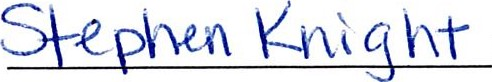 Stephen Knight